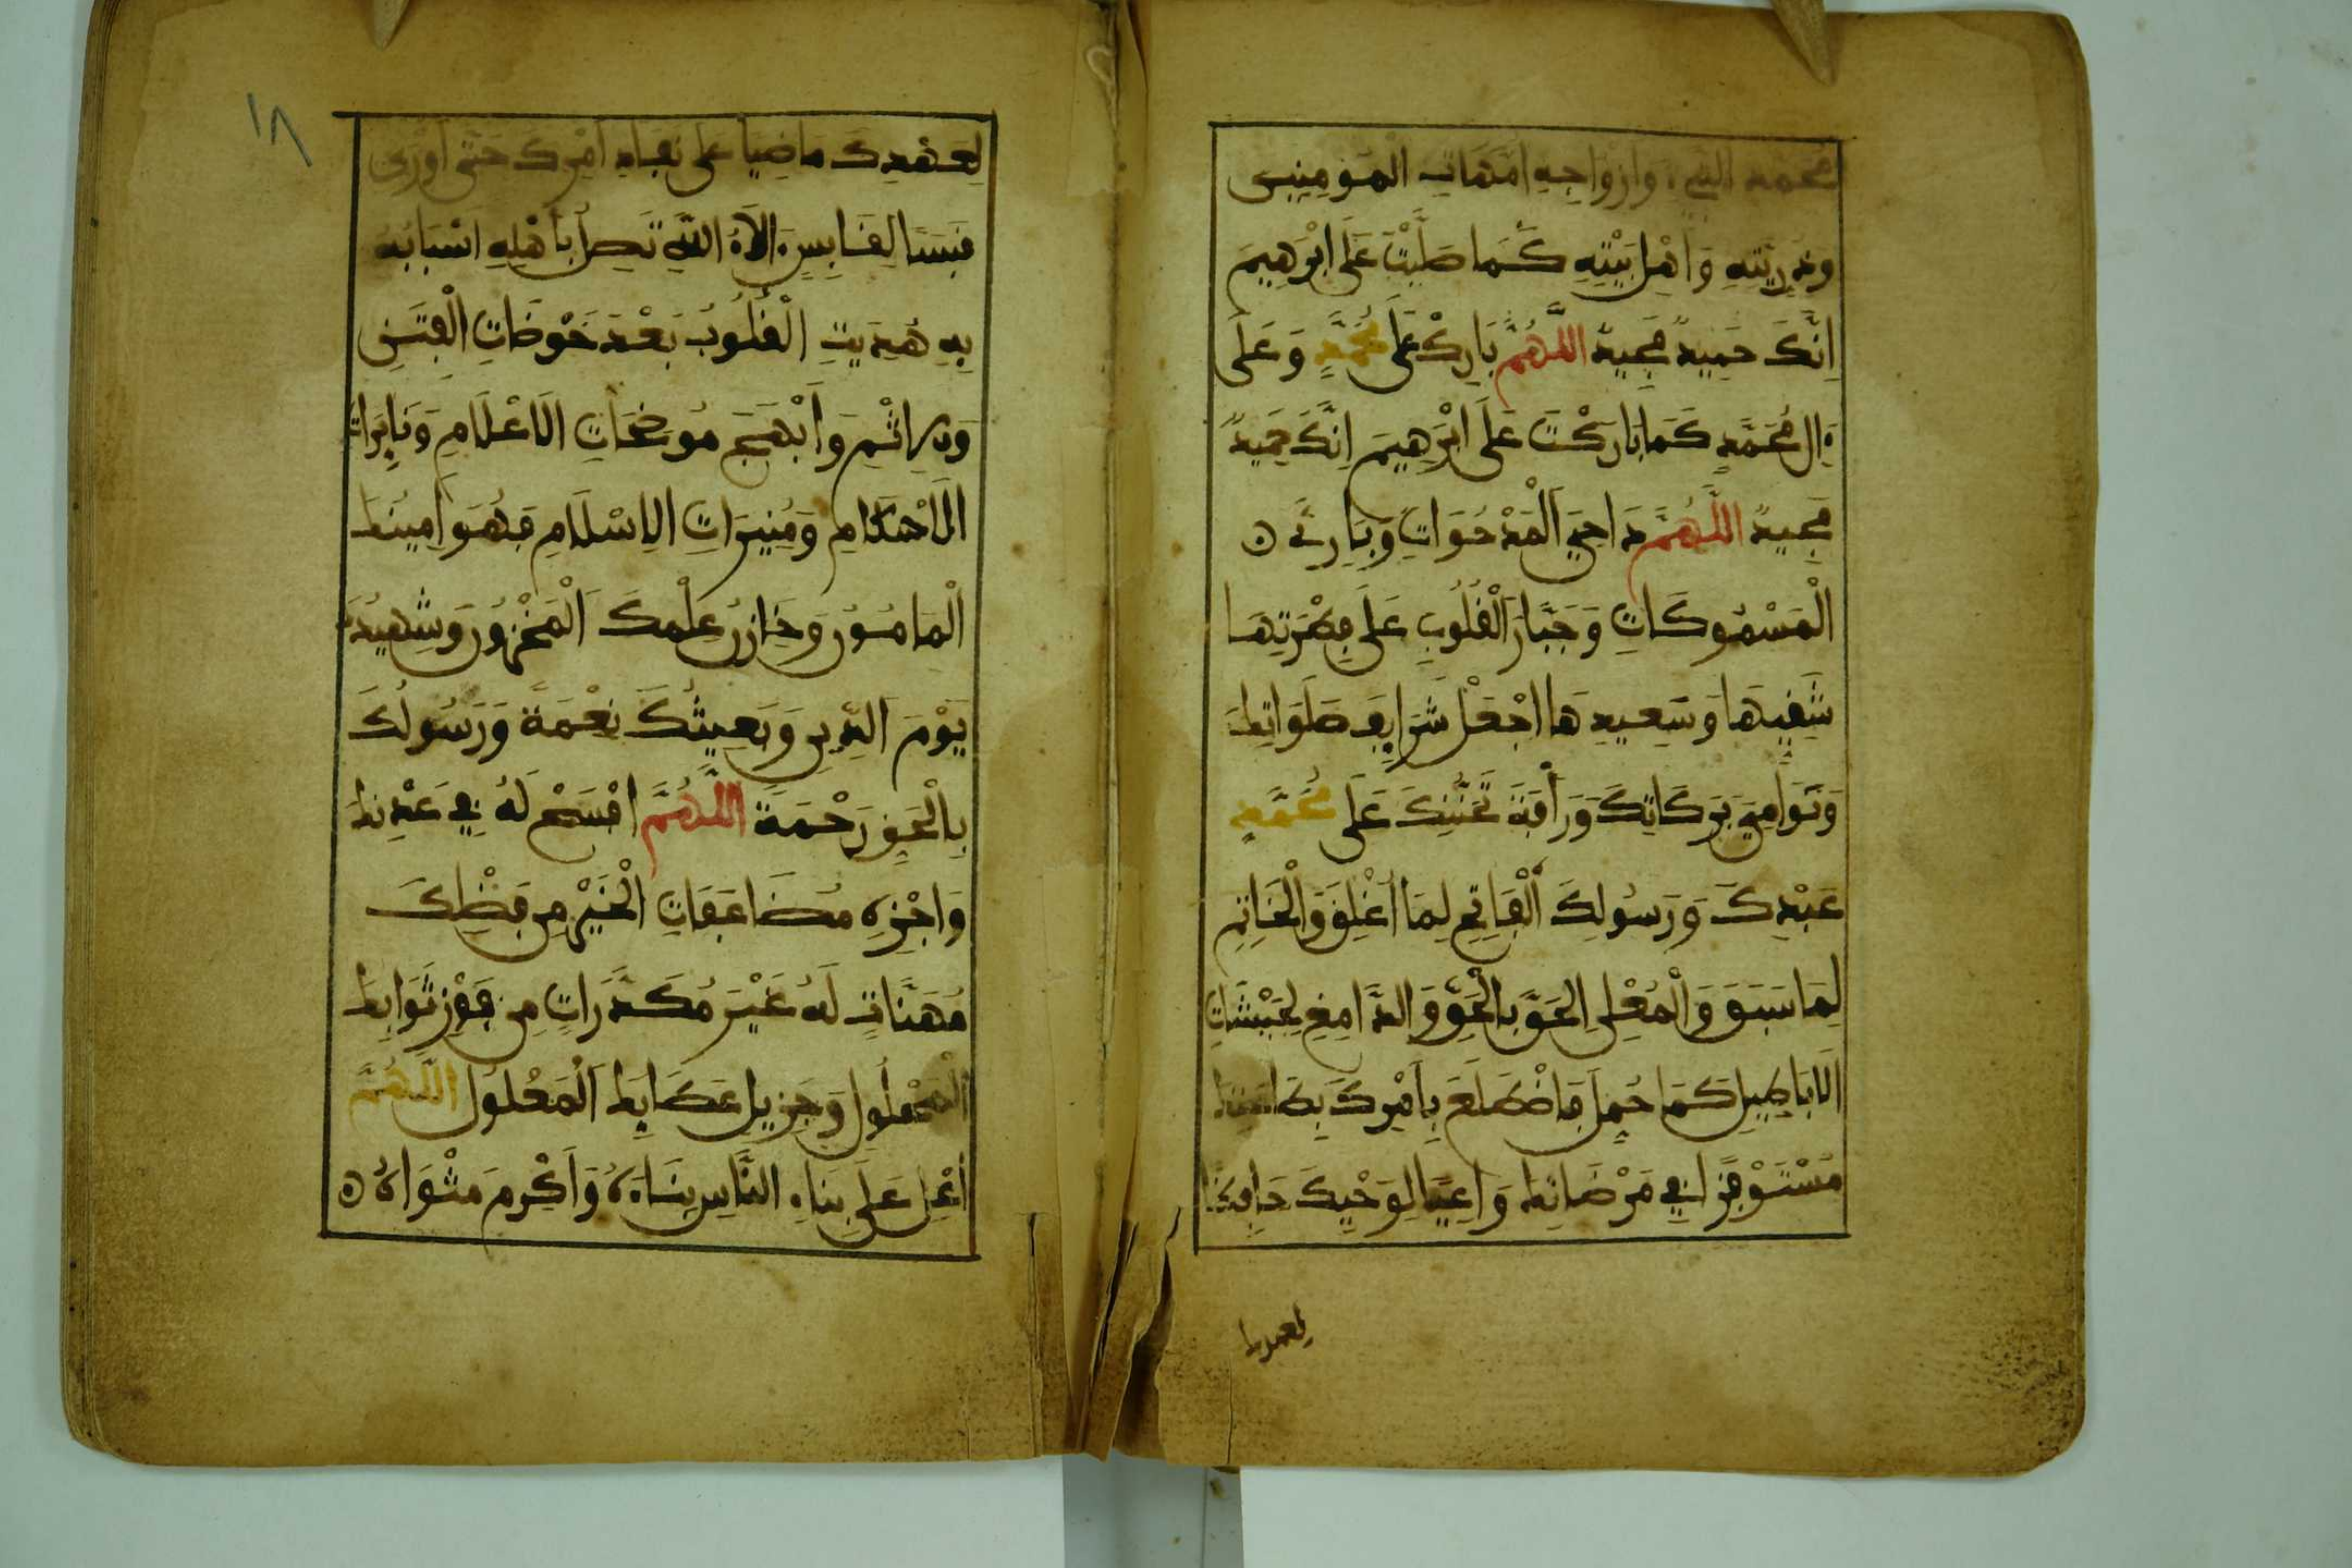 محمد النبي وازواجه امهات المومنين
وذريته وَاهل بيته كما صليت على ابرهيم
انك حميد مجيد اللهم بارك على محمد وعلى
ءال محمد كما باركت على ابرهيم انك حميد
مجيد اللهم داحي المدحوات وبارئ
المسموكات وجبار القلوب على فطرتها
شقيها وسعيدها اجعل شرايف صلواتك
ونوامي بركاتك ورأفة تحننك على محمد
عبدك ورسولك الفاتح لما أغلق والخاتم
لما سبق والمعلن الحق بالحق والدامغ لجيشات
الاباطيل كما حمل فاضطلع بأمرك بطاعتك
مستوفزا في مرضاتك واعيا لوحيك حافظا
لعهدك
١٨
لعهدك ماضيا على نفاذ امرك حتى اورى
قبسا لقابس الاء الله تصل بأهله اسبابه
به هديت القلوب بعد خوضات الفتن
والاثم وأبهج موضحات الاعلام ونايرات
الاحكام ومنيرات الاسلام فهو امينك
المامون وخازن علمك المخزون وشهيدك
يوم الدين وبعيثك نعمة ورسولك
بالحق رحمة اللهم افسح له في عدنك
واجزه مضاعفات الخير من فضلك
مهنات له غير مكدرات من فوز ثوابك
المحلول وجزيل عطايك المعلول اللهم
أعل على بناء الناس بناءه وأكرم مثواه